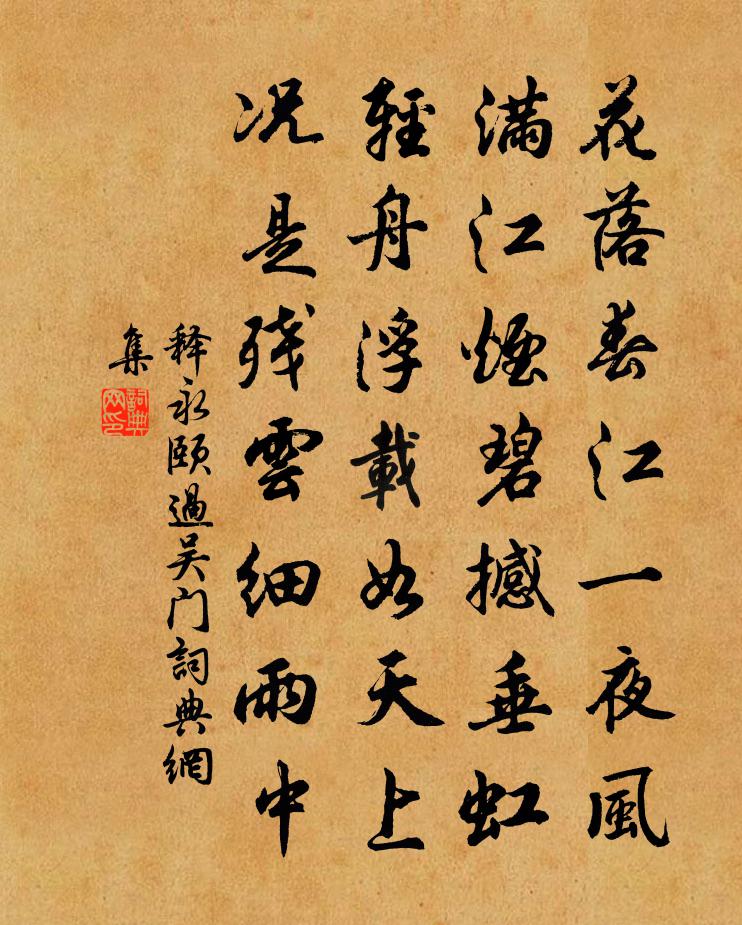 花落春江一夜風
滿江煙碧撼垂虹
輕舟浮載如天上
况是殘雲細雨中
释永颐過吴门詞典網
集
詞典網印